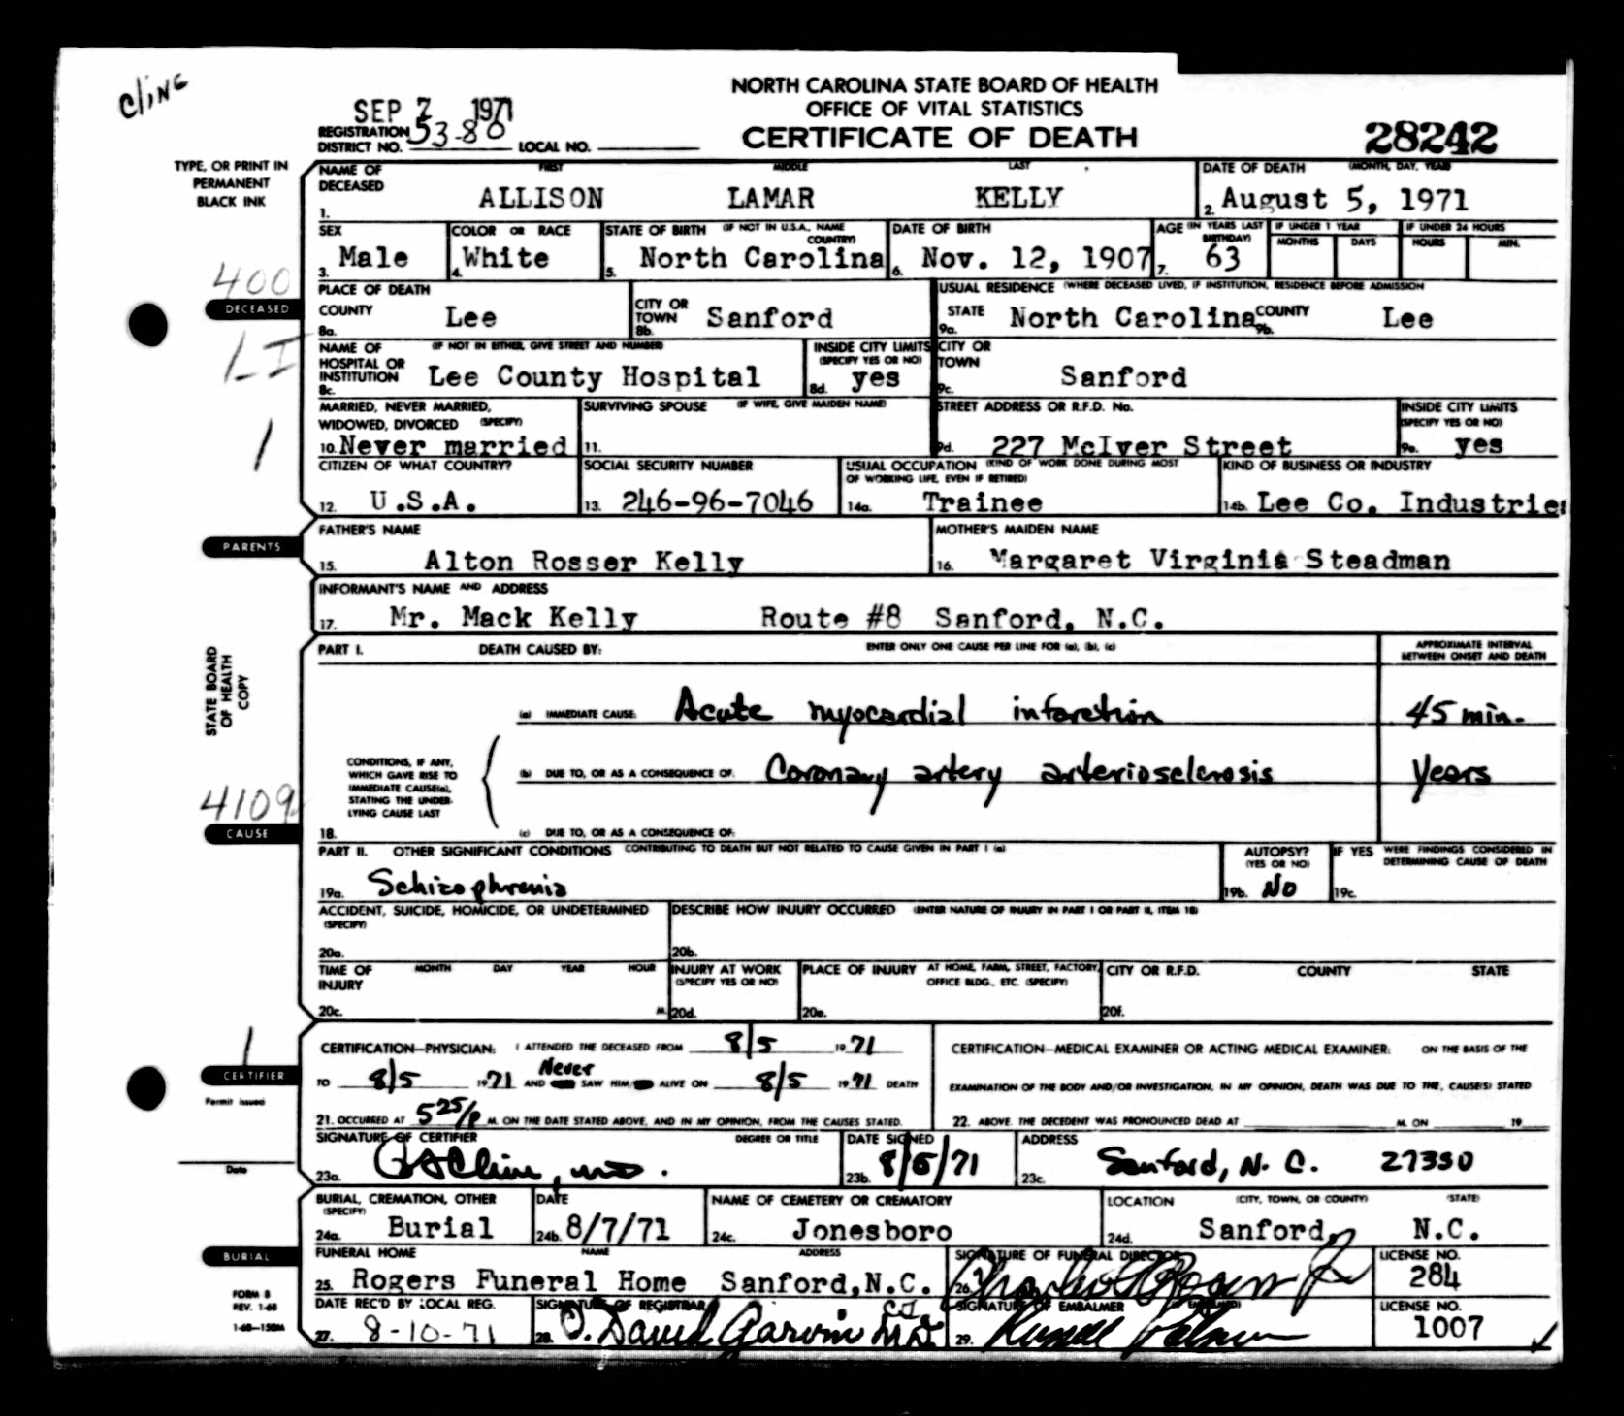 Cline
NORTH CAROLINA STATE BOARD OF HEALTH
OFFICE OF VITAL STATISTICS
CERTIFICATE OF DEATH
SEP 7 1971
28242
REGISTRATION DISTRICT NO. 53-80 LOCAL NO.
TYPE, OR PRINT IN
PERMANENT
BLACK INK
NAME OF DECEASED FIRST MIDDLE LAST DATE OF DEATH (MONTH, DAY, YEAR)
1. ALLISON LAMAR KELLY 2. August 5, 1971
SEX COLOR OR RACE STATE OF BIRTH (IF NOT IN U.S.A., NAME COUNTRY) DATE OF BIRTH AGE (IN YEARS LAST BIRTHDAY) IF UNDER 1 YEAR MONTHS DAYS IF UNDER 24 HOURS HOURS MIN.
3. Male 4. White 5. North Carolina 6. Nov. 12, 1907 7. 63
400
DECEASED
PLACE OF DEATH USUAL RESIDENCE (WHERE DECEASED LIVED, IF INSTITUTION, RESIDENCE BEFORE ADMISSION)
COUNTY 8a. Lee CITY OR TOWN 8b. Sanford STATE 9a. North Carolina COUNTY 9b. Lee
LI
NAME OF HOSPITAL OR INSTITUTION (IF NOT IN EITHER, GIVE STREET AND NUMBER) INSIDE CITY LIMITS (SPECIFY YES OR NO) CITY OR TOWN
8c. Lee County Hospital 8d. yes 9c. Sanford
1
MARRIED, NEVER MARRIED, WIDOWED, DIVORCED (SPECIFY) SURVIVING SPOUSE (IF WIFE, GIVE MAIDEN NAME) STREET ADDRESS OR R.F.D. No. INSIDE CITY LIMITS (SPECIFY YES OR NO)
10. Never married 11. 9d. 227 McIver Street 9e. yes
CITIZEN OF WHAT COUNTRY? SOCIAL SECURITY NUMBER USUAL OCCUPATION (KIND OF WORK DONE DURING MOST OF WORKING LIFE, EVEN IF RETIRED) KIND OF BUSINESS OR INDUSTRY
12. U.S.A. 13. 246-96-7046 14a. Trainee 14b. Lee Co. Industries
PARENTS
FATHER'S NAME MOTHER'S MAIDEN NAME
15. Alton Rosser Kelly 16. Margaret Virginia Steadman
INFORMANT'S NAME AND ADDRESS
17. Mr. Mack Kelly Route #8 Sanford, N.C.
STATE BOARD
OF HEALTH
COPY
PART I. DEATH CAUSED BY: ENTER ONLY ONE CAUSE PER LINE FOR (a), (b), (c) APPROXIMATE INTERVAL BETWEEN ONSET AND DEATH
(a) IMMEDIATE CAUSE: Acute myocardial infarction 45 min.
CONDITIONS, IF ANY,
WHICH GAVE RISE TO
IMMEDIATE CAUSE(a),
STATING THE UNDER-
LYING CAUSE LAST
(b) DUE TO, OR AS A CONSEQUENCE OF: Coronary artery arteriosclerosis Years
4109
CAUSE
18. (c) DUE TO, OR AS A CONSEQUENCE OF:
PART II. OTHER SIGNIFICANT CONDITIONS CONTRIBUTING TO DEATH BUT NOT RELATED TO CAUSE GIVEN IN PART I (a) AUTOPSY? (YES OR NO) IF YES WERE FINDINGS CONSIDERED IN DETERMINING CAUSE OF DEATH
19a. Schizophrenia 19b. No 19c.
ACCIDENT, SUICIDE, HOMICIDE, OR UNDETERMINED (SPECIFY) DESCRIBE HOW INJURY OCCURRED (ENTER NATURE OF INJURY IN PART I OR PART II, ITEM 18)
20a. 20b.
TIME OF INJURY MONTH DAY YEAR HOUR INJURY AT WORK (SPECIFY YES OR NO) PLACE OF INJURY AT HOME, FARM, STREET, FACTORY, OFFICE BLDG., ETC. (SPECIFY) CITY OR R.F.D. COUNTY STATE
20c. M. 20d. 20e. 20f.
1
CERTIFIER
Permit issued
Date
CERTIFICATION—PHYSICIAN: I ATTENDED THE DECEASED FROM 8/5 19 71
TO 8/5 1971 AND Never SAW HIM ALIVE ON 8/5 1971 DEATH
21. OCCURRED AT 5 25/p M. ON THE DATE STATED ABOVE, AND IN MY OPINION, FROM THE CAUSES STATED.
CERTIFICATION—MEDICAL EXAMINER OR ACTING MEDICAL EXAMINER: ON THE BASIS OF THE
EXAMINATION OF THE BODY AND/OR INVESTIGATION, IN MY OPINION, DEATH WAS DUE TO THE, CAUSE(S) STATED
22. ABOVE. THE DECEDENT WAS PRONOUNCED DEAD AT M. ON 19
SIGNATURE OF CERTIFIER DEGREE OR TITLE DATE SIGNED ADDRESS
23a. Cline, MD. 23b. 8/5/71 23c. Sanford, N.C. 27330
BURIAL, CREMATION, OTHER (SPECIFY) DATE NAME OF CEMETERY OR CREMATORY LOCATION (CITY, TOWN, OR COUNTY) (STATE)
24a. Burial 24b. 8/7/71 24c. Jonesboro 24d. Sanford, N.C.
BURIAL
FUNERAL HOME NAME ADDRESS SIGNATURE OF FUNERAL DIRECTOR LICENSE NO.
25. Rogers Funeral Home Sanford,N.C. 26. Charles Rogers Jr 284
FORM 8
REV. 1-68
1-68—150M
DATE REC'D BY LOCAL REG. SIGNATURE OF REGISTRAR SIGNATURE OF EMBALMER LICENSE NO.
27. 8-10-71 28. O. David Garvin MD 29. 1007